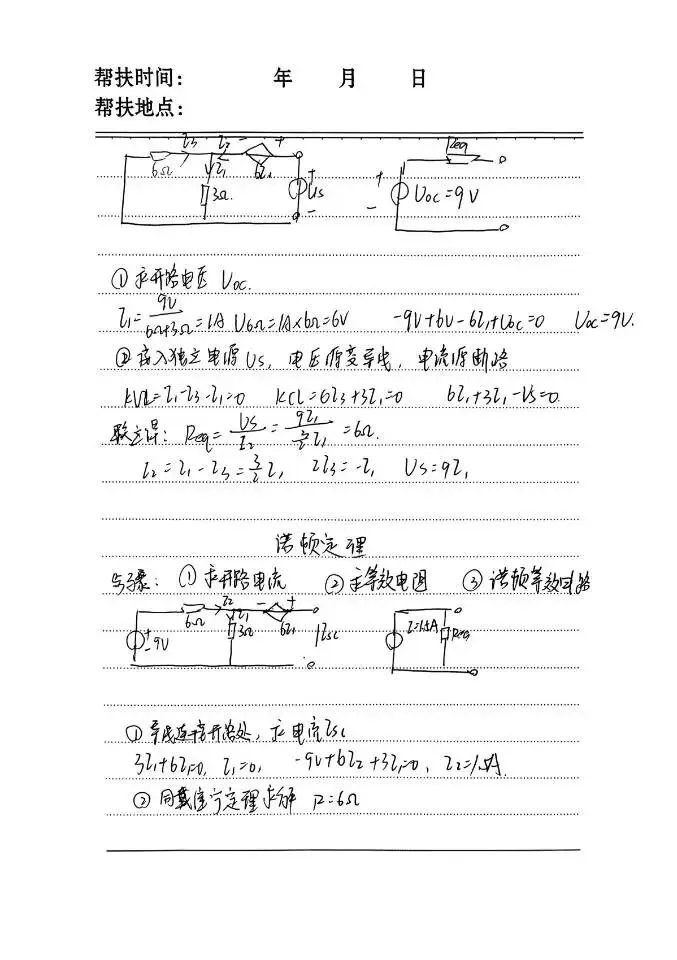 帮扶时间: 年 月 日
帮扶地点:
6Ω I₃ I₂ - + 6I₁ I₁ 3Ω + Us - Req + - Uoc=9V
①求开路电压 Uoc.
I₁=9V/(6Ω+3Ω)=1A U6Ω=1A×6Ω=6V -9V+6V-6I₁+Uoc=0 Uoc=9V.
独立电源Us, 电压源变导线, 电流源断路
KCL=6I₃+3I₁=0 6I₁+3I₁-Us=0
联立得: Req=Us/I₂=9I₁/(3/2 I₁)=6Ω.
I₂=I₁-I₃=3/2 I₁ 2I₃=-I₁ Us=9I₁
诺顿定理
步骤: ①求开路电流 ②求等效电阻 ③诺顿等效回路
+ - 9V 6Ω I₂ I₁ 3Ω - + 6I₁ Isc I=1.5A Req
①导线连接开路处, 求电流Isc
3I₁+6I₁=0, I₁=0, -9V+6I₂+3I₁=0, I₂=1.5A.
②同戴维宁定理求解 R=6Ω